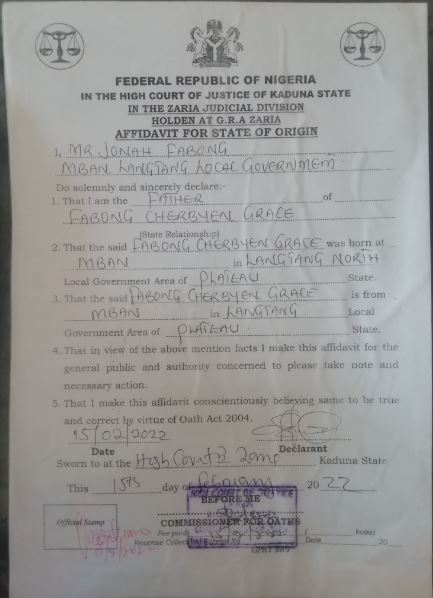 FEDERAL REPUBLIC OF NIGERIA
IN THE HIGH COURT OF JUSTICE OF KADUNA STATE
IN THE ZARIA JUDICIAL DIVISION
HOLDEN AT G.R.A ZARIA
AFFIDAVIT FOR STATE OF ORIGIN
I, MR JONAH FABONG
MBAN LANGTANG LOCAL GOVERNMENT
Do solemnly and sincerely declare:-
1. That I am the FATHER of
FABONG CHERBYEN GRACE
(State Relationship)
2. That the said FABONG CHERBYEN GRACE was born at
MBAN in LANGTANG NORTH
Local Government Area of PLATEAU State.
3. That the said FABONG CHERBYEN GRACE is from
MBAN in LANGTANG Local
Government Area of PLATEAU State.
4. That in view of the above mention facts I make this affidavit for the
general public and authority concerned to please take note and
necessary action.
5. That I make this affidavit conscientiously believing same to be true
and correct by virtue of Oath Act 2004.
15/02/2022
Date Declarant
Sworn to at the High Court Kaduna State
This 15th day of 2022
HIGH COURT OF JUSTICE
BEFORE ME
COMMISSIONER FOR OATHS
Official Stamp
Fee paid kobo)
Revenue Date 20